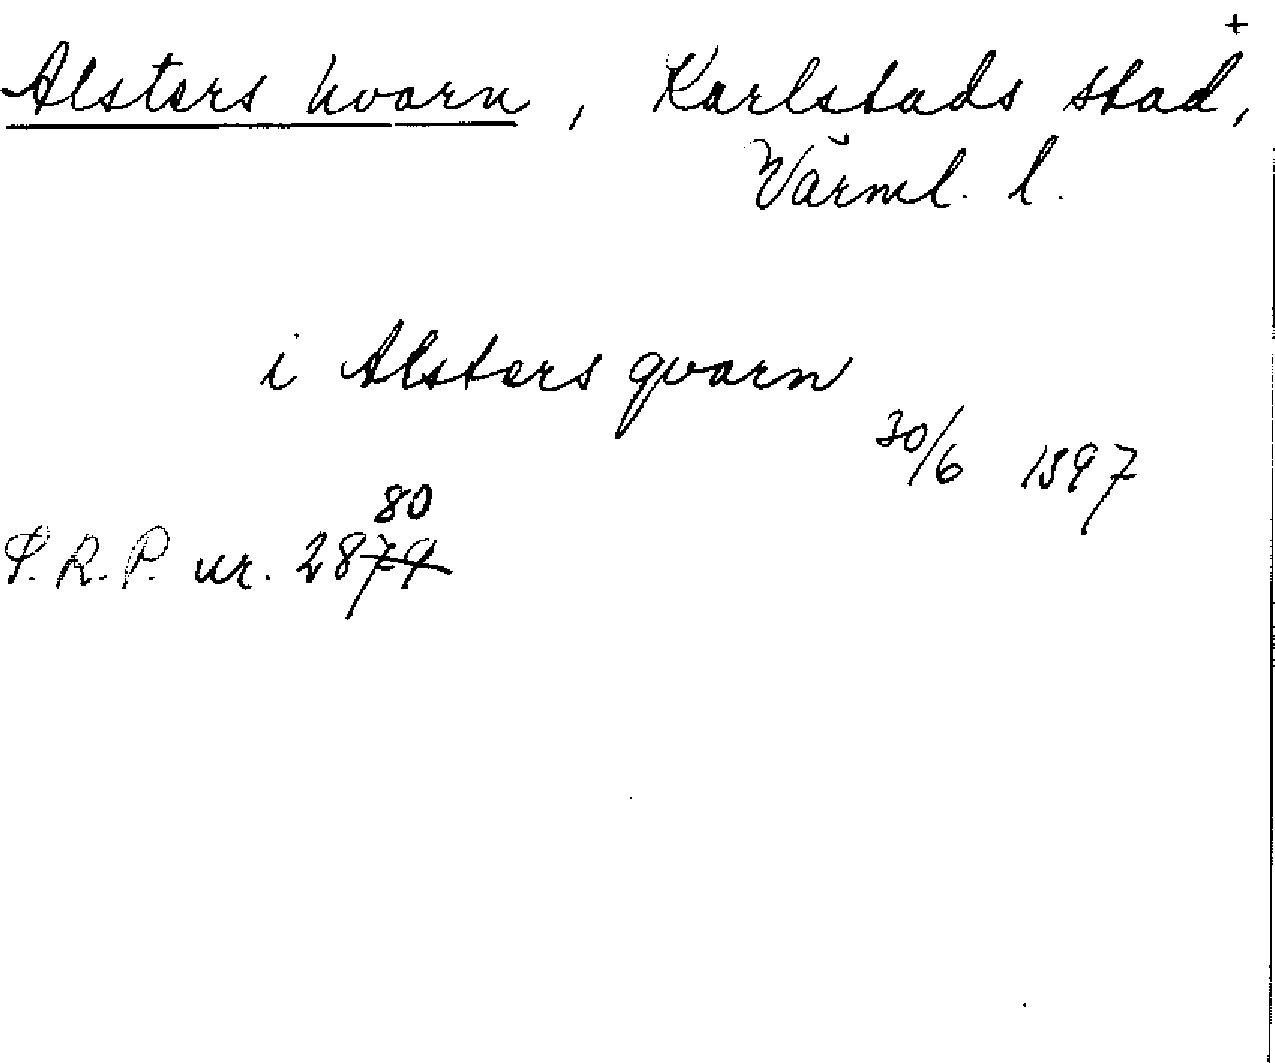 +
Alsters kvarn, Karlstads stad,
Värml. l.
i Alsters qvarn
30/6 1397
80
S.R.P. nr. 2879